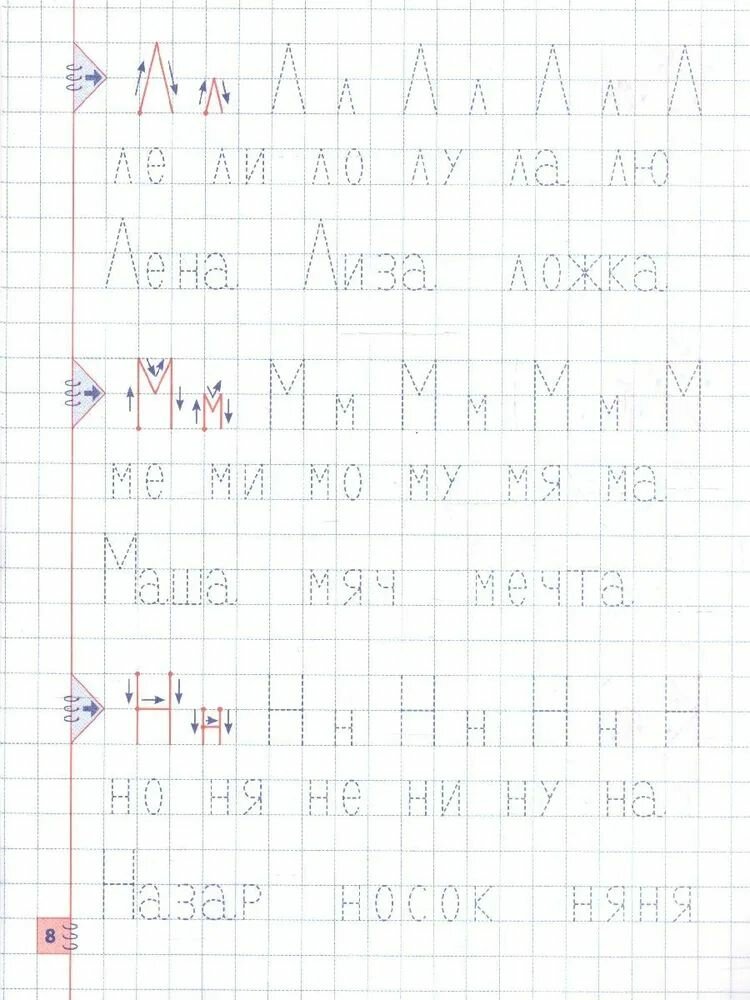 Л л Л л Л л Л л Л
ле ли ло лу ла лю
Лена Лиза ложка
М м М м М м М м М
ме ми мо му мя ма
Маша мяч мечта
Н н Н н Н н Н н Н
но ня не ни ну на
Назар носок няня
8